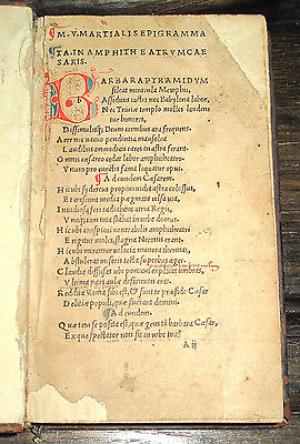 M. V. MARTIALIS EPIGRAMMA
TA. IN AMPHITHEATRVM CAE
SARIS.
BARBARA PYRAMIDVM
sileat miracula Memphis,
Assiduus iactet nec Babylona labor,
Nec Triuiae templo molles laudentur
honores,
Dissimuletque Deum cornibus ara frequens.
Aere nec uacuo pendentia mausolea
Laudibus immodicis cares in astra ferant.
Omnis caesareo cedat labor amphitheatro.
Vnum pro cunctis fama loquatur opus.
Ad eundem Caesarem.
Hic ubi sydereus propius uidet astra colossus,
Et crescunt media pegmata celsa uia,
Inuidiosa feri radiabant atria Regis,
Vnaque iam tota stabat in urbe domus.
Hic ubi conspicui uenerabilis amphitheatri
Erigitur moles, stagna Neronis erant.
Hic ubi miramur
Abstulerat miseris tecta superbus ager.
Claudia diffusas ubi porticus explicat umbras,
Vltima pars aulae deficientis erat.
Reddita Roma sibi est, & sunt te praeside Caesar
Delitiae populi, quae fuerant domini.
Ad eundem.
Quae tam seposita est, quae gens tam barbara Caesar,
Ex qua spectator non sit in urbe tua?
A ii